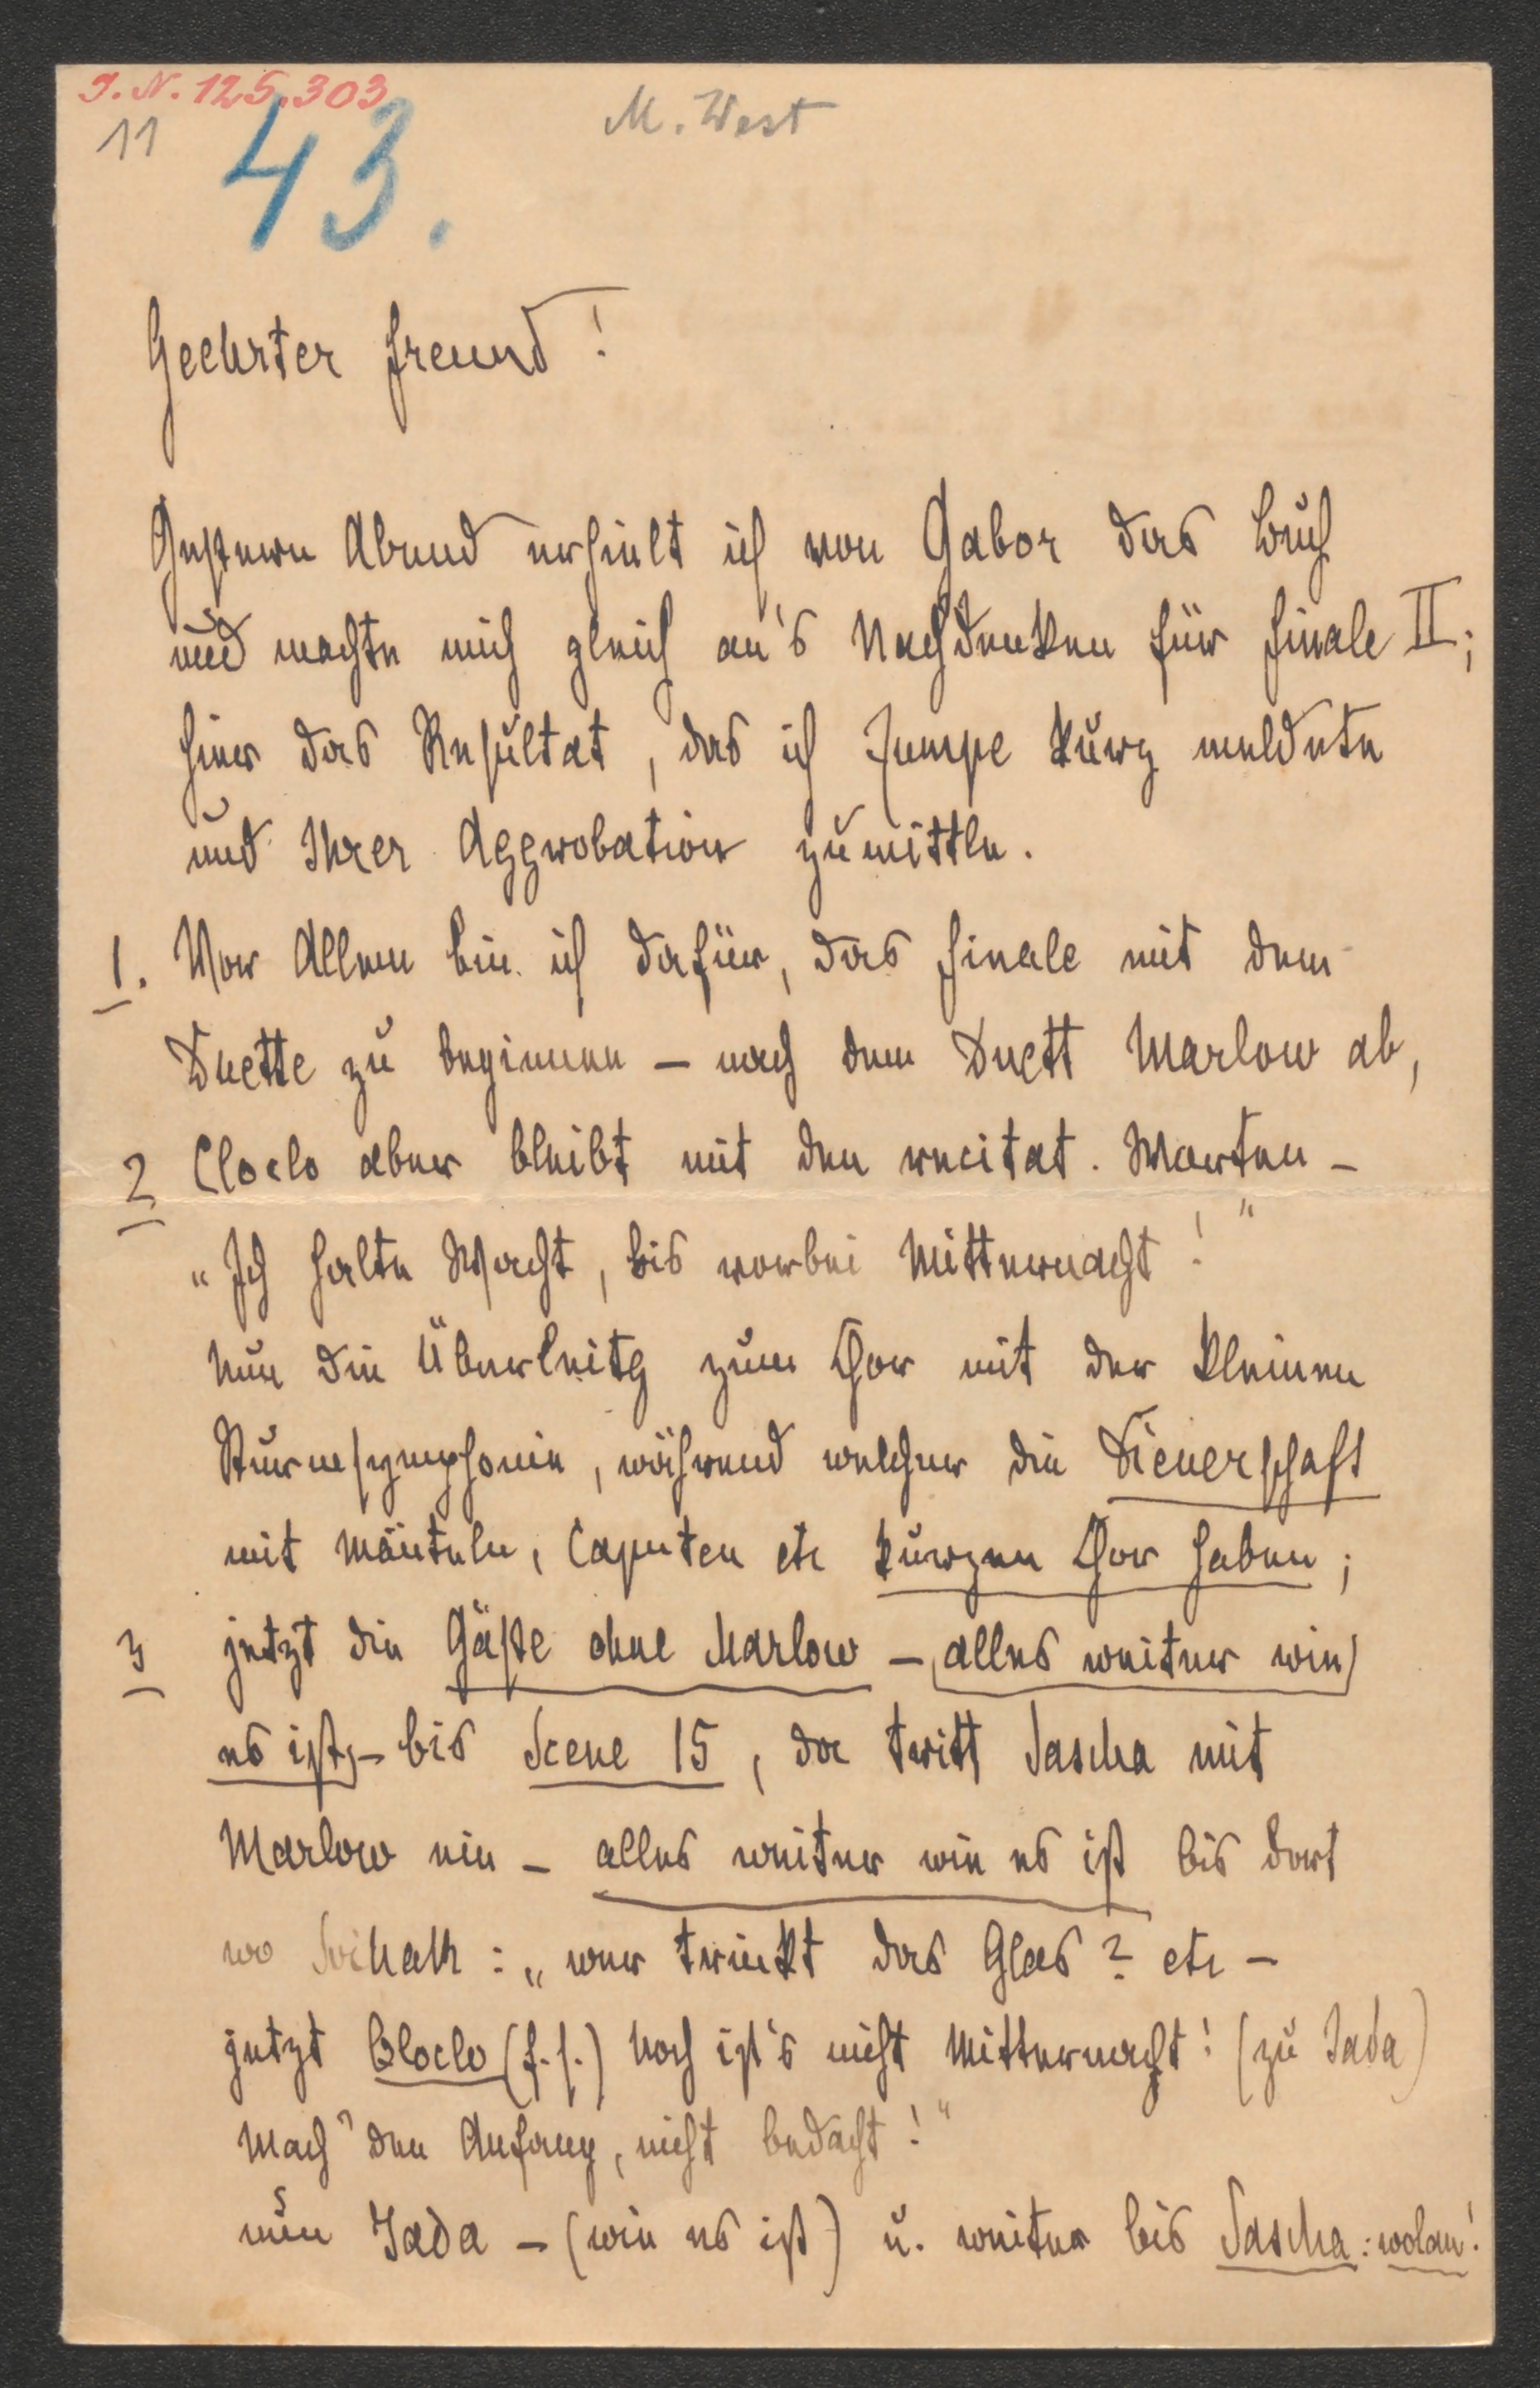 I. N. 125.303
11
43.
M. West
Geehrter Freund!
Gestern Abend erhielt ich von Gabor das Buch
und machte mich gleich an's Nachdenken für Finale II;
hier das Resultat, das ich Zumpe kurz meldete
und Ihrer Approbation zumittle.
1. Vor Allem bin ich dafür, das Finale mit dem
Duette zu beginnen – nach dem Duett Marlow ab,
2 Cloclo aber bleibt mit den recitat. Worten –
„Ich halte Wacht, bis vorbei Mitternacht!"
Nun die Überleitg zum Chor mit der kleinen
Sturmsymphonie, während welcher die Dienerschaft
mit Mänteln, Caputen etc kurzen Chor haben;
3 jetzt die Gäste ohne Marlow – (alles weiter wie
es ist) – bis Scene 15, da tritt Sascha mit
Marlow ein – alles weiter wie es ist bis dort
wo : „wer trinkt das Glas? etc –
jetzt Cloclo (f. s.) Noch ist's nicht Mitternacht! (zu Jada)
Mach' den Anfang, nicht bedacht!"
nun Jada – (wie es ist) u. weiter bis Sascha: wolan!